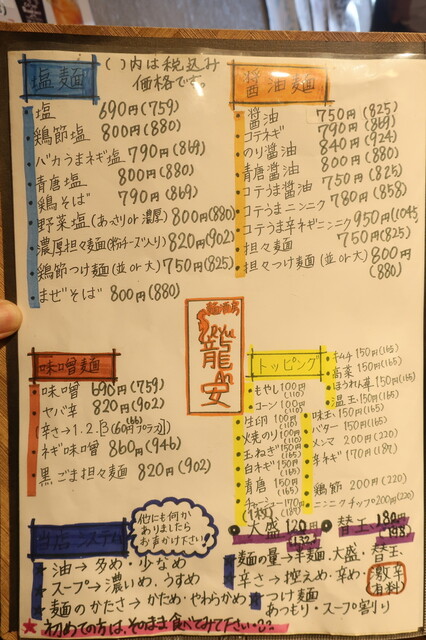 塩麺
( )内は税込み
価格です。
塩 690円(759)
鶏節塩 800円(880)
バカうまネギ塩 790円(869)
青唐塩 800円(880)
鶏そば 790円(869)
野菜塩(あっさりor濃厚) 800円(880)
濃厚担々麺(粉チーズ入り) 820円(902)
鶏節つけ麺(並or大) 750円(825)
まぜそば 800円(880)
醤油麺
醤油 750円(825)
コテネギ 790円(869)
のり醤油 840円(924)
青唐醤油 800円(880)
コテうま醤油 750円(825)
コテうまニンニク 780円(858)
コテうま辛ネギニンニク 950円(1045)
担々麺 750円(825)
担々つけ麺(並or大) 800円
(880)
龍
安
味噌麺
味噌 690円(759)
ヤバ辛 820円(902)
辛さ→1.2.3(60円プラス)
(66)
ネギ味噌 860円(946)
黒ごま担々麺 820円(902)
トッピング
もやし 100円
(110)
コーン 100円
(110)
生卵 100円
(110)
焼のり 100円
(110)
玉ねぎ 150円
(165)
白ネギ 150円
(165)
青唐 150円
(165)
チャーシュー 170円
(1枚) (187)
キムチ 150円(165)
高菜 150円(165)
ほうれん草 150円(165)
温玉 150円(165)
味玉 150円(165)
バター 150円(165)
メンマ 200円(220)
辛ネギ 170円(187)
鶏節 200円(220)
ニンニクチップ 200円(220)
大盛 120円
(132)
替玉 180円
(198)
当店システム
他にも何か
ありましたら
お声かけ下さい!
・油→多め・少なめ
・スープ→濃いめ・うすめ
・麺のかたさ→かため・やわらかめ
・麺の量→半麺・大盛・替玉
・辛さ→控えめ・辛め・激辛
有料
・つけ麺
あつもり・スープ割り
★初めての方は、そのまま食べてみて下さい